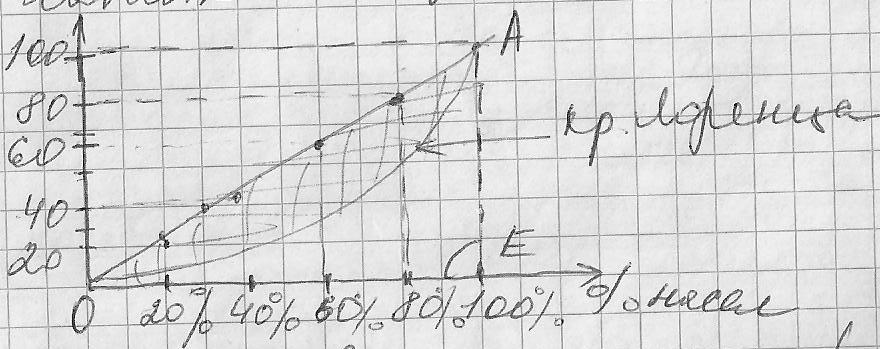 100
A
80
60
кр. Лоренца
40
20
E
0 20% 40% 60% 80% 100% % насел